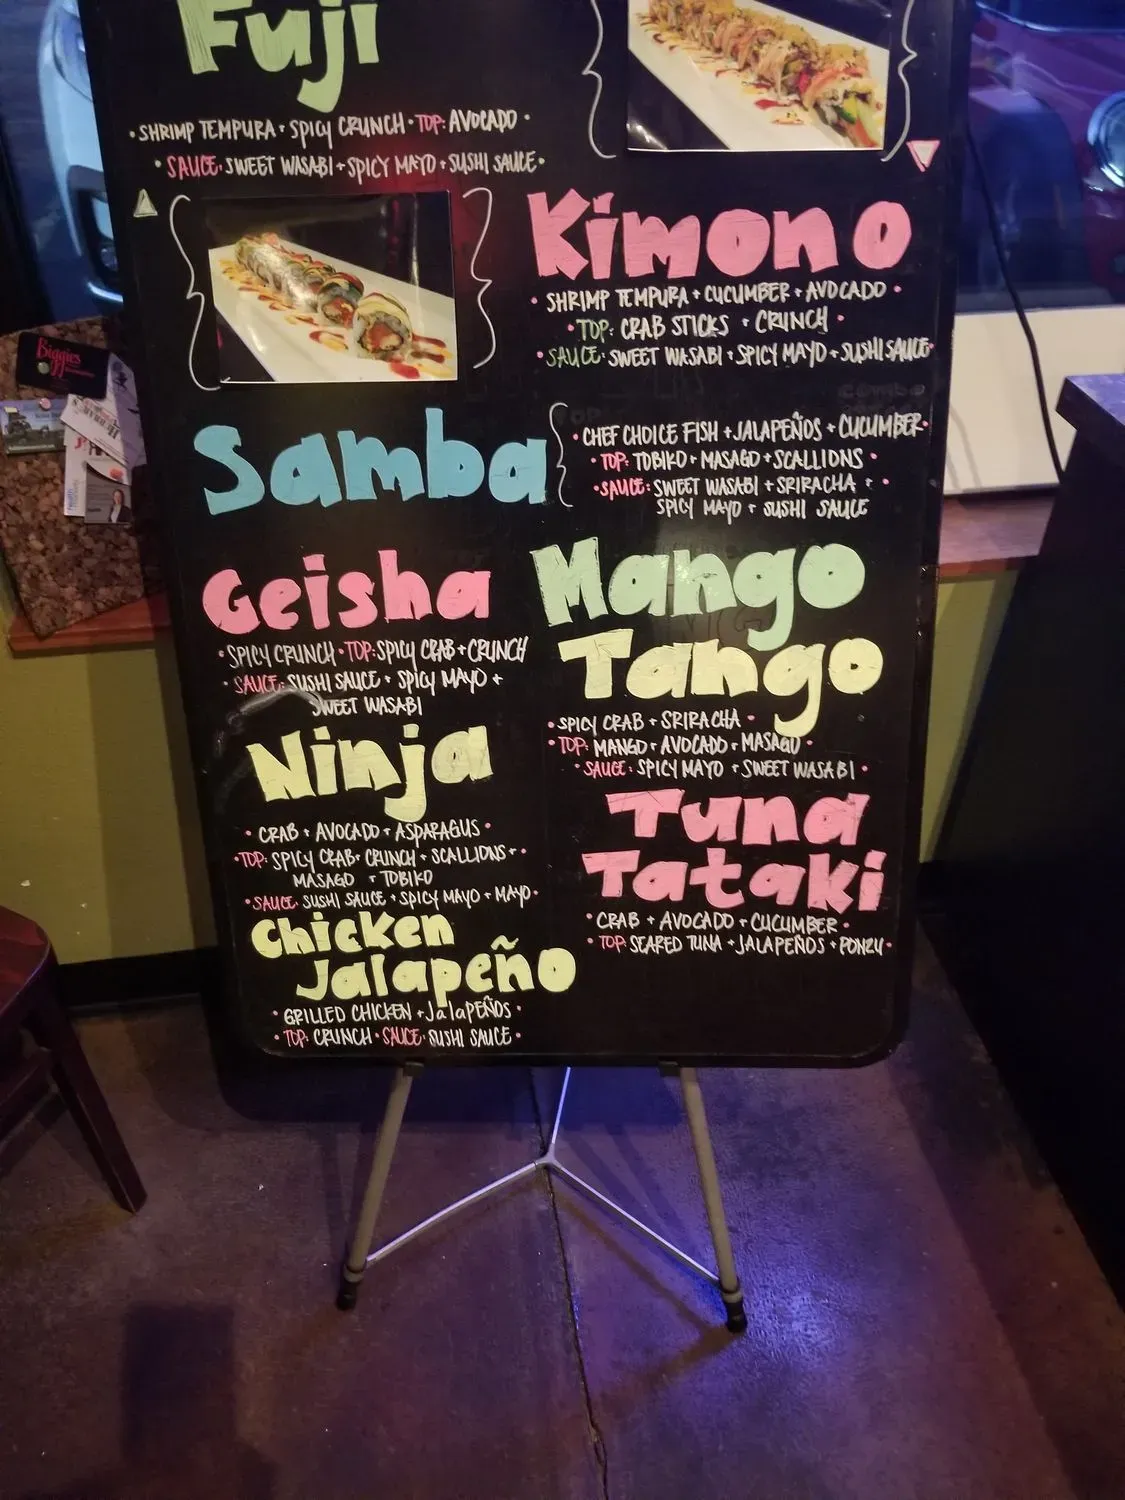 Fuji
• SHRIMP TEMPURA + SPICY CRUNCH • TOP: AVOCADO •
• SAUCE: SWEET WASABI + SPICY MAYO + SUSHI SAUCE •
Kimono
• SHRIMP TEMPURA + CUCUMBER + AVOCADO •
• TOP: CRAB STICKS + CRUNCH •
• SAUCE: SWEET WASABI + SPICY MAYO + SUSHI SAUCE •
Samba
• CHEF CHOICE FISH + JALAPEÑOS + CUCUMBER •
• TOP: TOBIKO + MASAGO + SCALLIONS •
• SAUCE: SWEET WASABI + SRIRACHA + •
SPICY MAYO + SUSHI SAUCE
Geisha
• SPICY CRUNCH • TOP: SPICY CRAB + CRUNCH
• SAUCE: SUSHI SAUCE + SPICY MAYO +
SWEET WASABI
Ninja
• CRAB + AVOCADO + ASPARAGUS •
• TOP: SPICY CRAB + CRUNCH + SCALLIONS + •
MASAGO + TOBIKO
• SAUCE: SUSHI SAUCE + SPICY MAYO + MAYO •
Chicken
Jalapeño
• GRILLED CHICKEN + JalaPEÑOS •
• TOP: CRUNCH • SAUCE: SUSHI SAUCE •
Mango
Tango
• SPICY CRAB + SRIRACHA •
• TOP: MANGO + AVOCADO + MASAGO •
• SAUCE: SPICY MAYO + SWEET WASABI •
Tuna
Tataki
• CRAB + AVOCADO + CUCUMBER •
• TOP: SEARED TUNA + JALAPEÑOS + PONZU •
Biggies